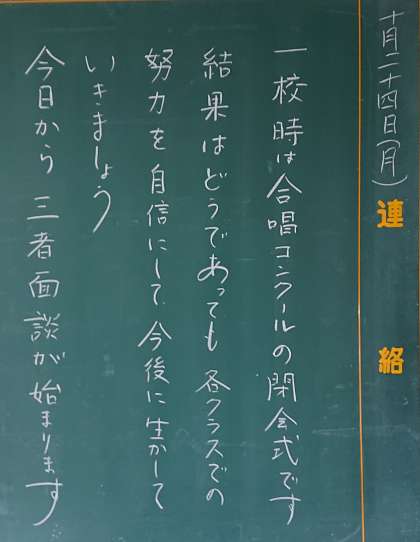 十月二十四日(月)
連絡
一校時は合唱コンクールの閉会式です
結果はどうであっても各クラスでの
努力を自信にして今後に生かして
いきましょう
今日から三者面談が始まります